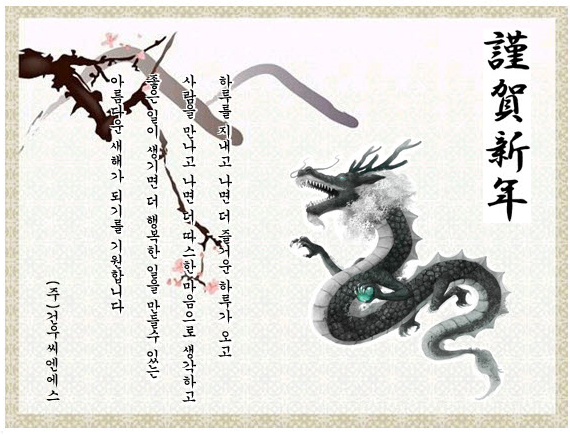 謹賀新年
하루를 지내고 나면 더 즐거운 하루가 오고
사람을 만나고 나면 더 따스한 마음으로 생각하고
좋은 일이 생기면 더 행복한 일을 만들수 있는
아름다운 새해가 되기를 기원합니다
(주)건우씨엔에스